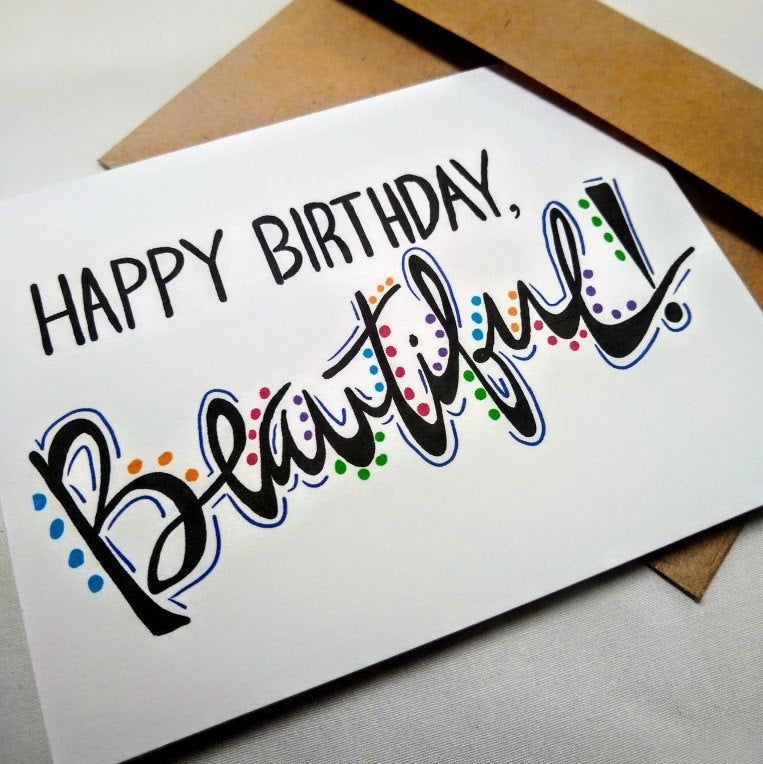 HAPPY BIRTHDAY,
Beautiful!